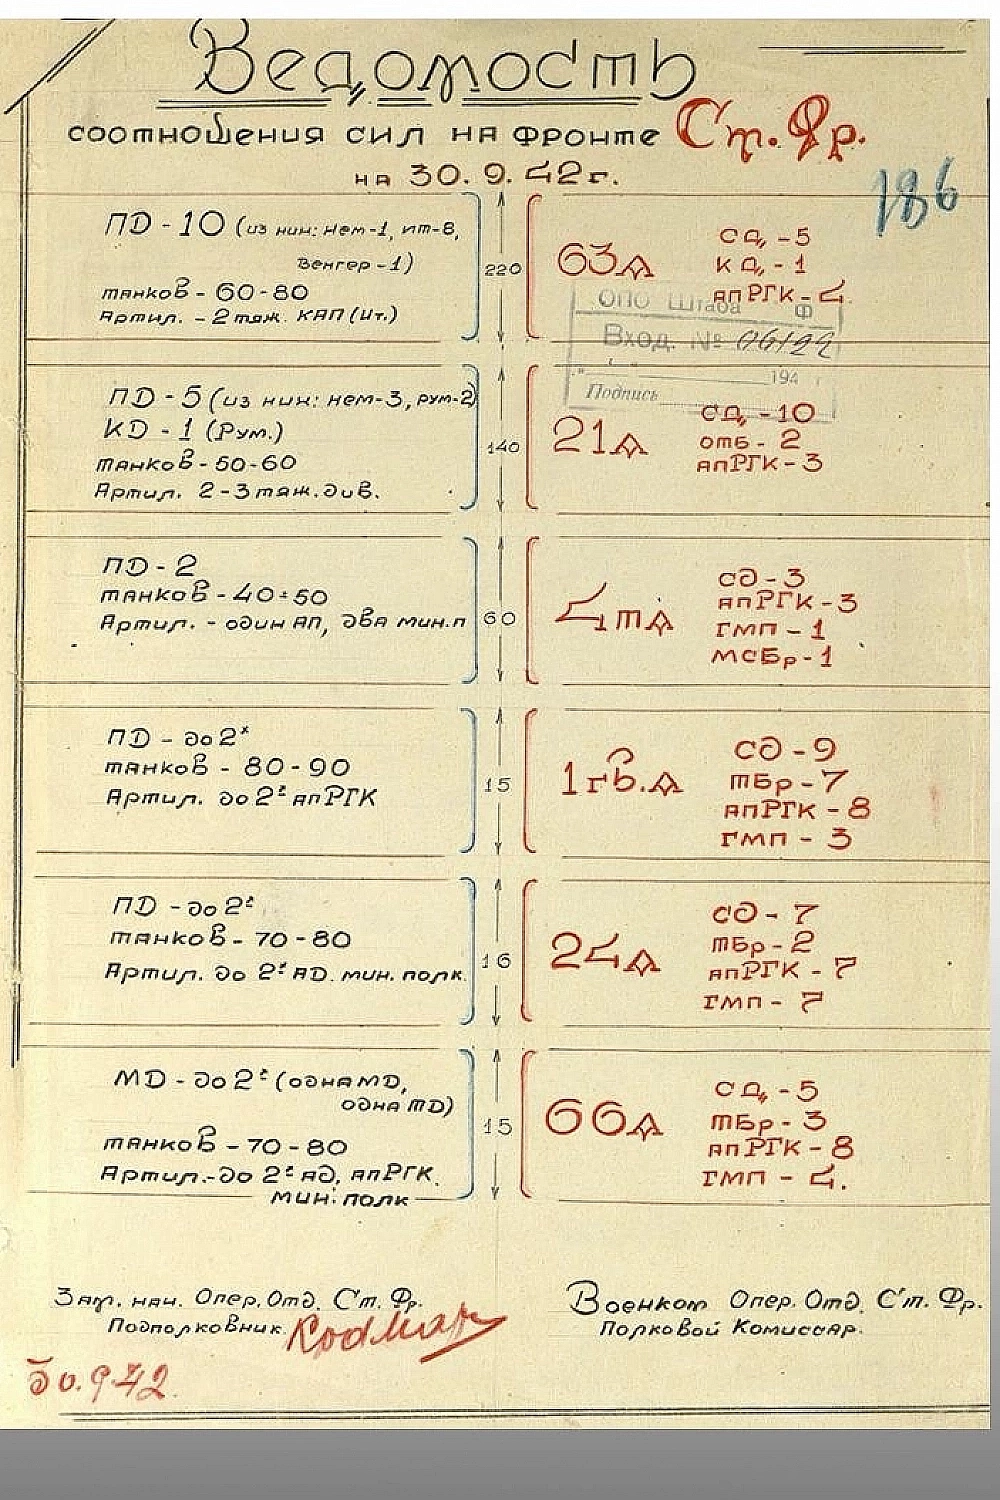 Ведомость
соотношения сил на фронте Ст. Фр.
на 30.9.42 г.
186
ПД - 10 (из них: нем-1, ит-8,
венгер-1)
танков - 60-80
Артил. - 2 тяж. КАП (Ит.)
220
63А
СД - 5
КД - 1
апРГК - 4.
ОПО Штаба Ф
Вход. № 06122
" " 194
Подпись
ПД - 5 (из них: нем-3, рум-2)
КД - 1 (Рум.)
танков - 50-60
Артил. 2-3 тяж. див.
140
21А
СД - 10
отб - 2
апРГК - 3
ПД - 2
танков - 40-50
Артил. - один АП, два мин.п
60
4тА
сд - 3
апРГК - 3
гмп - 1
мсбр - 1
ПД - до 2х
танков - 80-90
Артил. до 2х апРГК
15
1гв.А
сд - 9
тбр - 7
апРГК - 8
гмп - 3
ПД - до 2х
танков - 70-80
Артил. до 2х АД. мин. полк.
16
24А
сд - 7
тбр - 2
апРГК - 7
гмп - 7
МД - до 2х (одна МД,
одна тД)
танков - 70-80
Артил.- до 2х ад, апРГК.
мин. полк
15
66А
СД - 5
тбр - 3
апРГК - 8
гмп - 4.
Зам. нач. Опер. Отд. Ст. Фр.
Подполковник
Военком Опер. Отд. Ст. Фр.
Полковой Комиссар.
30.9.42.